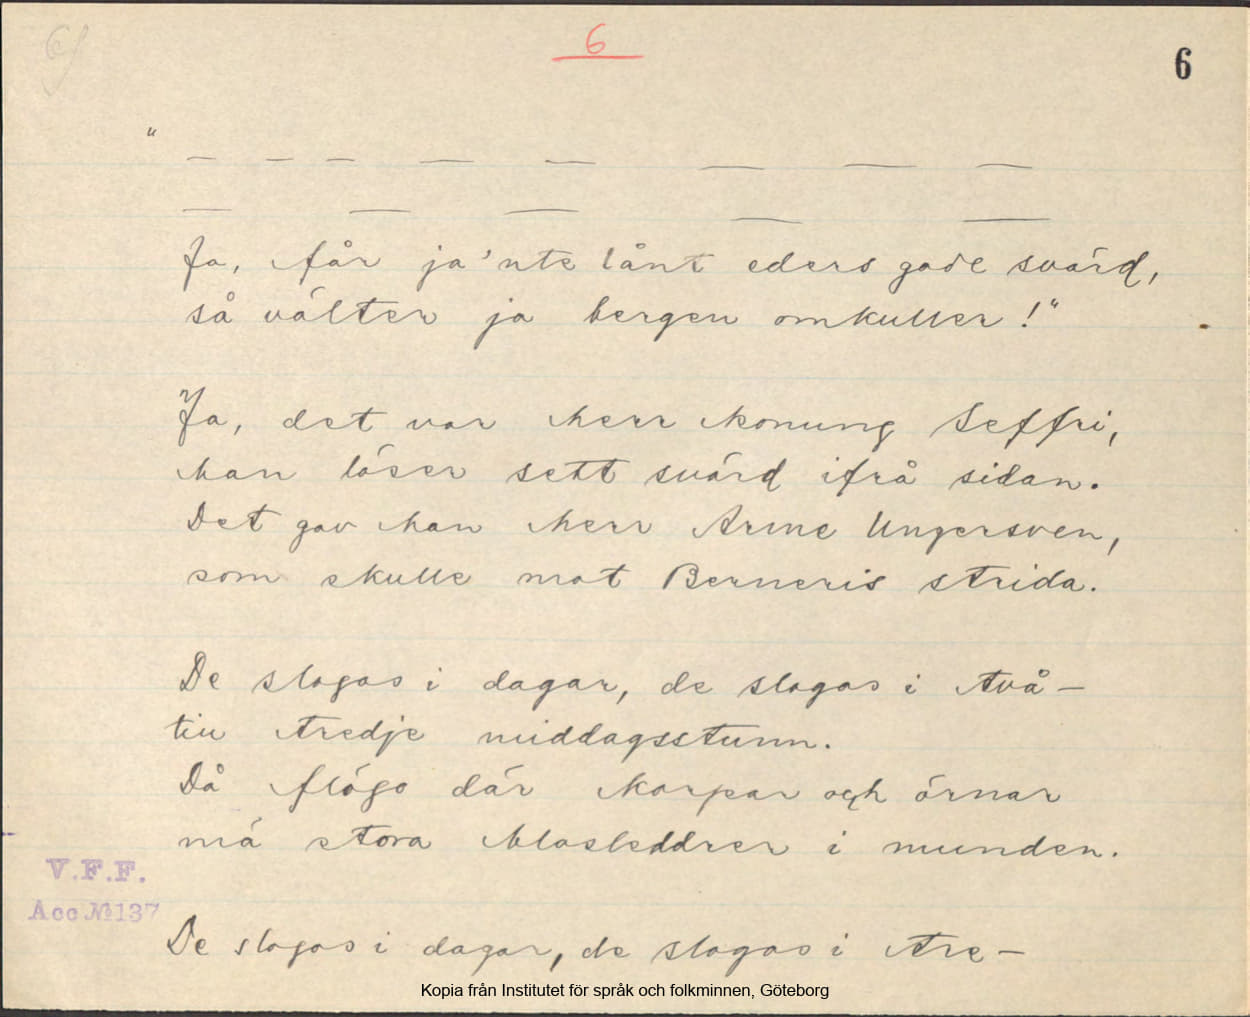 6
6
"— — — — — — — —
— — — — —
Ja, får ja 'nte lånt eders gode svärd,
så välter ja bergen omkuller!"
Ja, det var herr konung Seffri,
han löser sett svärd ifrå sidan.
Det gav han herr Arme Ungersven,
som skulle mot Berneris strida.
De slogos i dagar, de slogos i två—
till tredje middagsstunn.
Då flögo där korpar och örnar
mä stora blodleddrer i munden.
V.F.F.
Acc № 137
De slogos i dagar, de slogos i tre—
Kopia från Institutet för språk och folkminnen, Göteborg